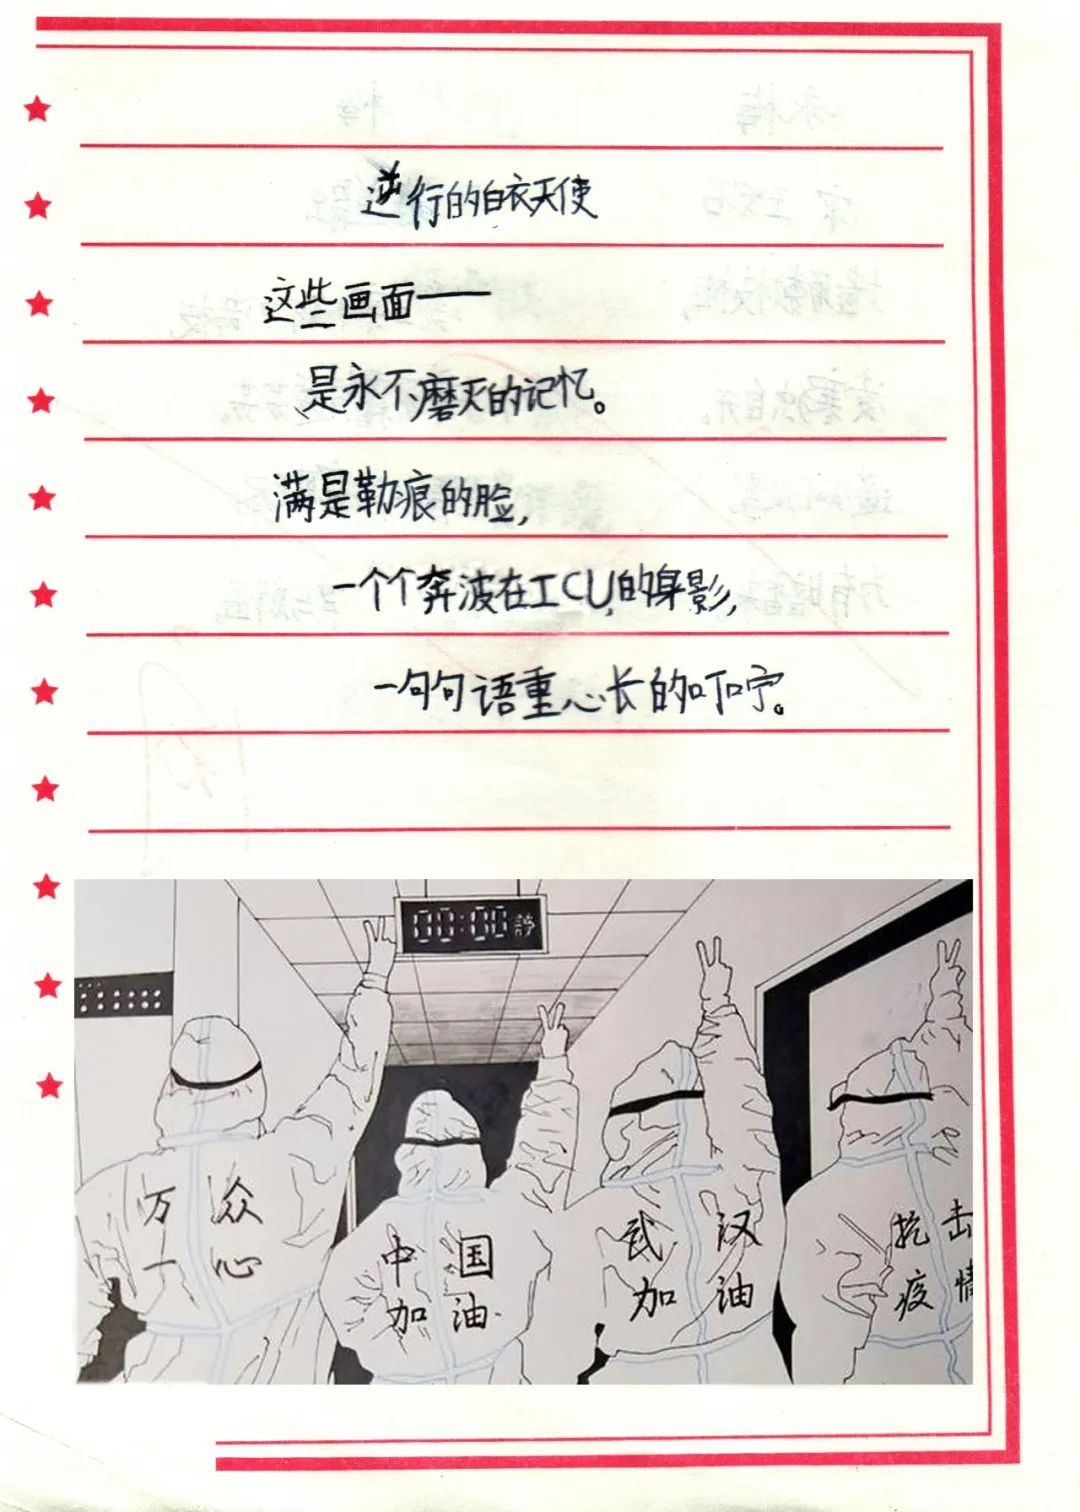 逆行的白衣天使
这些画面——
是永不磨灭的记忆。
满是勒痕的脸,
一个个奔波在ICU的身影,
一句句语重心长的叮咛。
00:00 静
万众
一心
中国
加油
武汉
加油
抗击
疫情